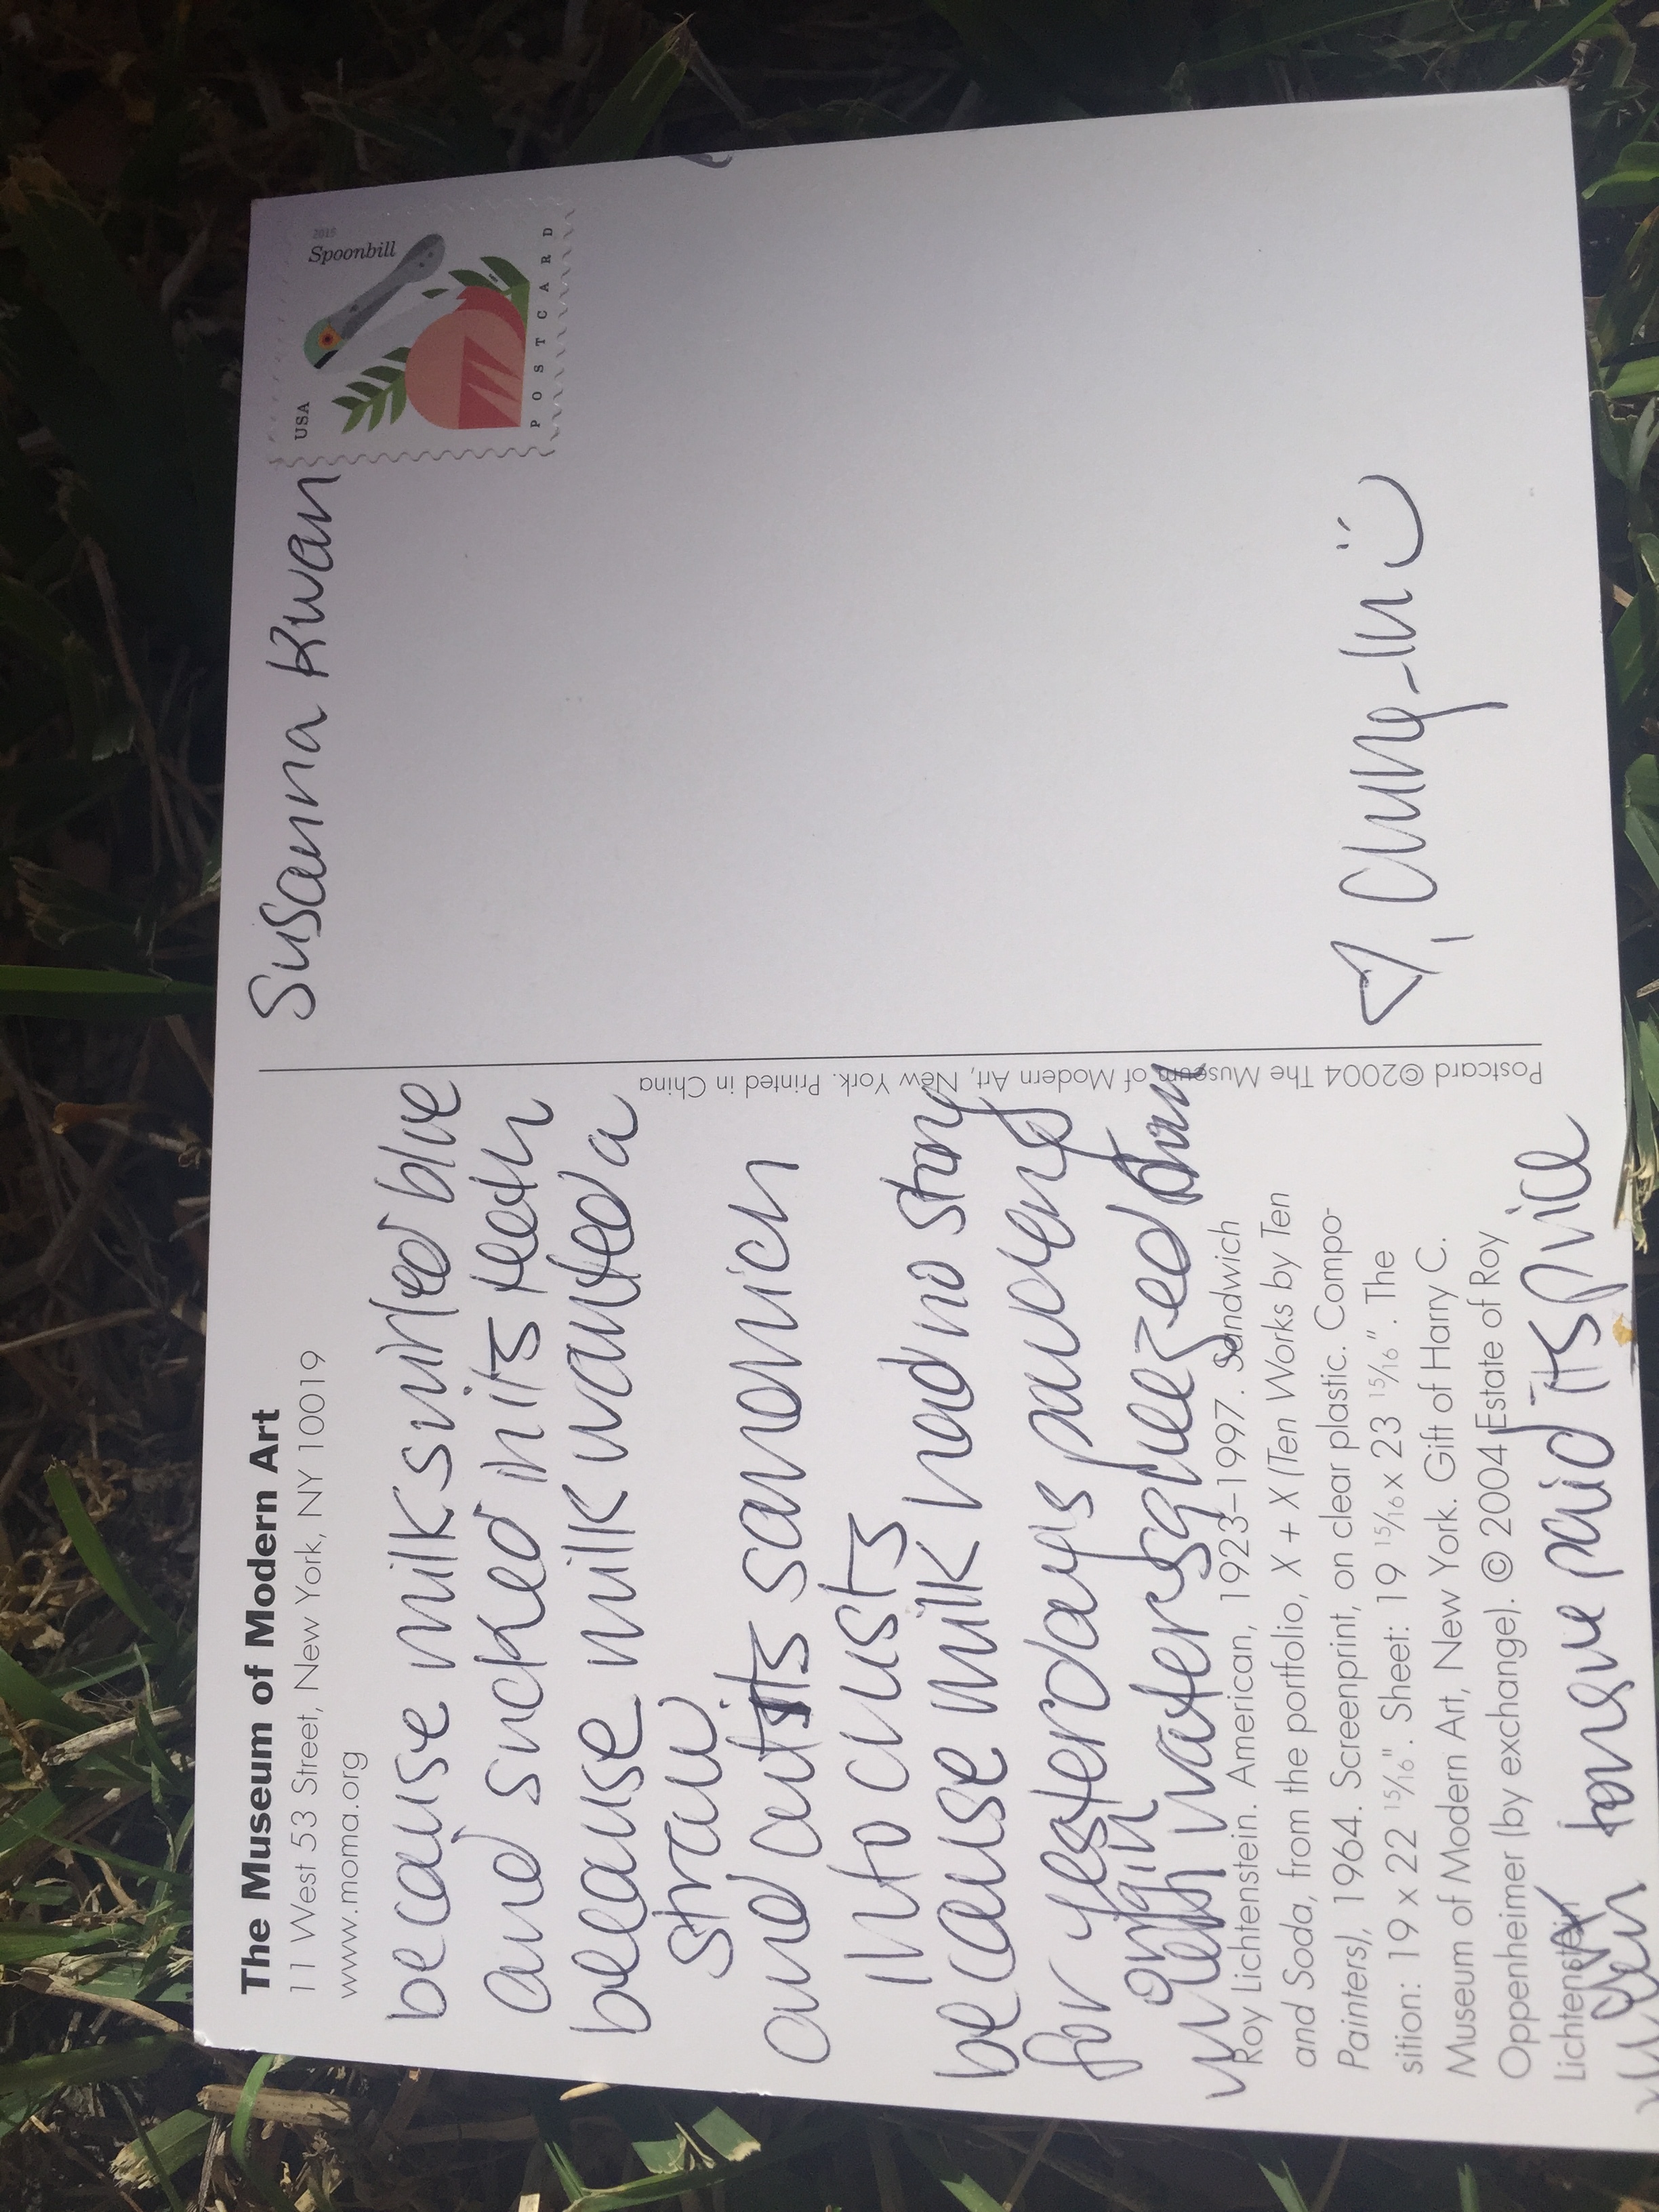 The Museum of Modern Art
11 West 53 Street, New York, NY 10019
www.moma.org
because milk smirled blue
and sucked in its teeth
because milk wanted a
straw
and cut its sandwich
into crusts
because milk had no story
for yesterdays pawoeng
origin
with water squeezed
when tongue paid its price
Roy Lichtenstein. American, 1923–1997. Sandwich
and Soda, from the portfolio, X + X (Ten Works by Ten
Painters), 1964. Screenprint, on clear plastic. Compo-
sition: 19 x 22 15/16". Sheet: 19 15/16 x 23 15/16". The
Museum of Modern Art, New York. Gift of Harry C.
Oppenheimer (by exchange). © 2004 Estate of Roy
Lichtenstein
Postcard ©2004 The Museum of Modern Art, New York. Printed in China
Susanna Kwan
2019
Spoonbill
USA
POSTCARD